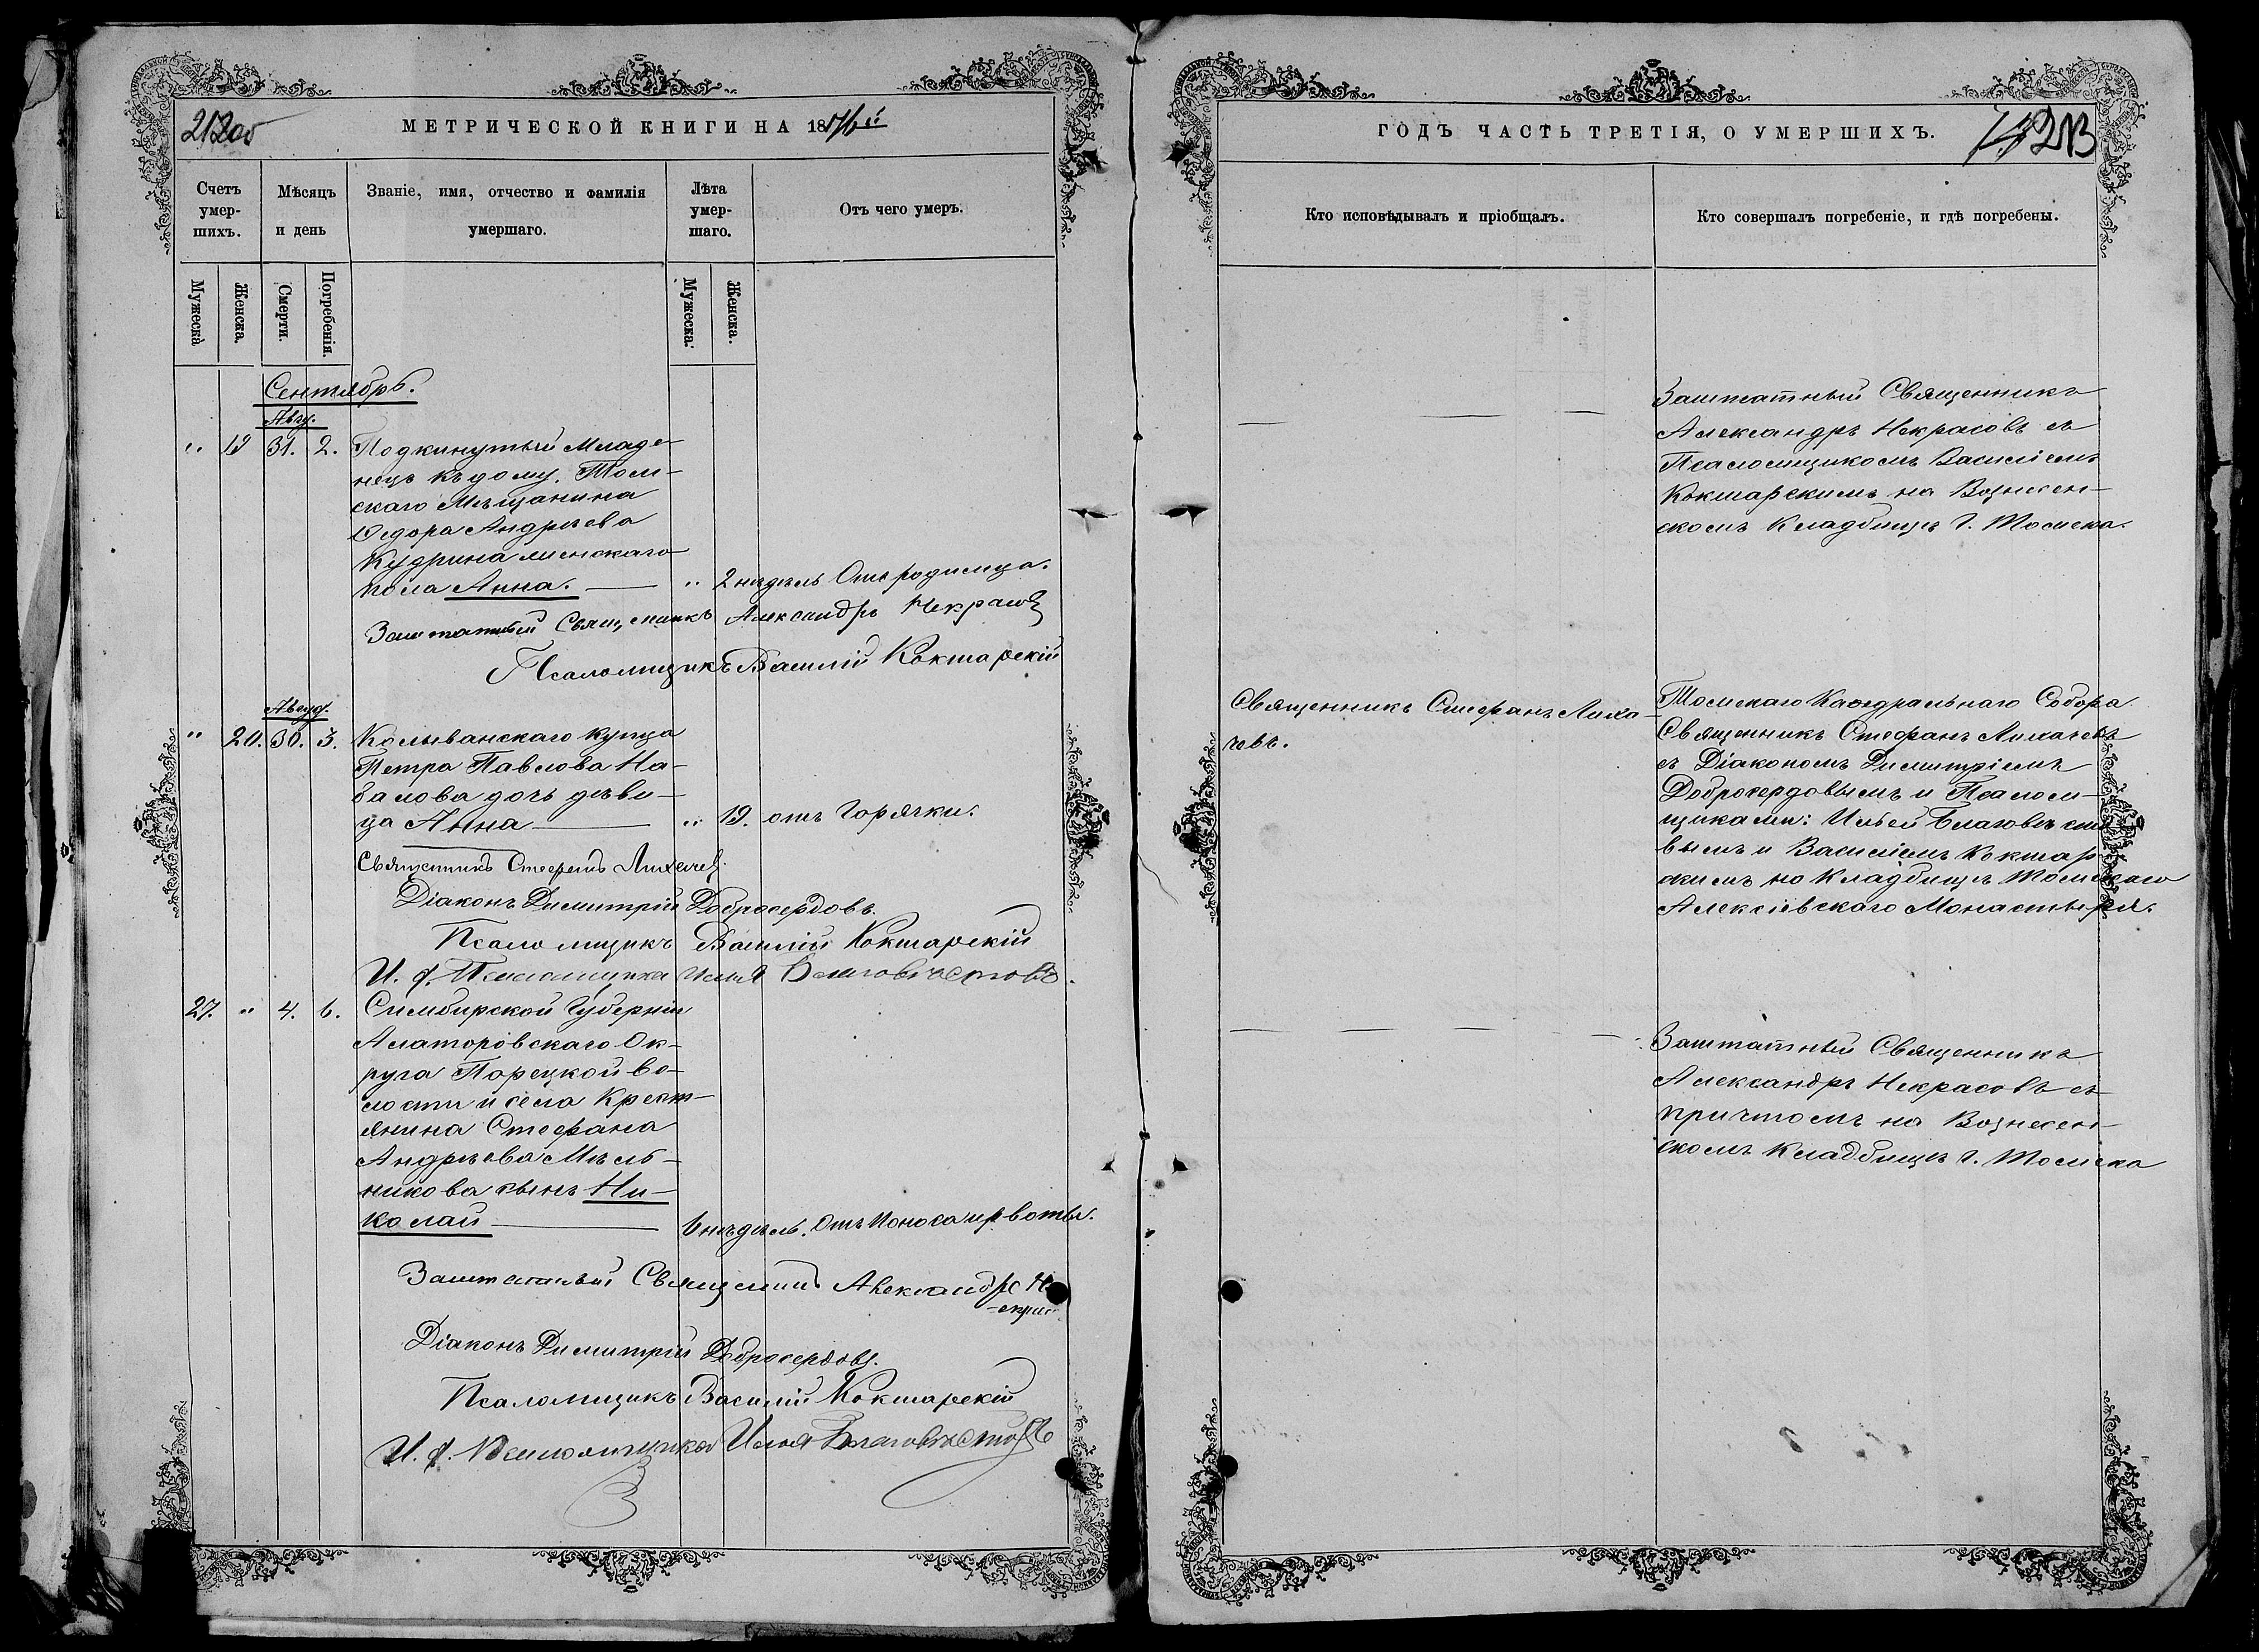 212об
МЕТРИЧЕСКОЙ КНИГИ НА 1876й
Счетъ умер-шихъ.
Мѣсяцъ и день
Званіе, имя, отчество и фамилія умершаго.
Лѣта умер-шаго.
Отъ чего умеръ.
Мужеска
Женска.
Смерти.
Погребенія.
Мужеска.
Женска.
Сентябрь.
Авгу.
" 19 31. 2. Подкинутый Младе-
нецъ къ дому, Том-
скаго Мѣщанина
Ѳедора Андреева
Кудрина женскаго
пола Анна. — " 2 недѣль Отъ родимца.
Заштатный Священникъ Александръ Некрасовъ
Псаломщикъ Василій Кокшарскій
Авгус.
" 20. 30. 3. Колыванскаго купца
Петра Павлова На-
балова дочь дѣви-
ца Анна — " 19. отъ горячки.
Священникъ Стефанъ Лихачев
Діаконъ Димитрій Добросердовъ.
Псаломщикъ Василій Кокшарскій
И. д. Псаломщика Илья Благовѣстовъ.
27. " 4. 6. Симбирской Губерніи
Алаторовскаго Ок-
руга Порецкой во-
лости и села Крест-
янина Стефана
Андрѣева Мѣль-
никова сынъ Ни-
колай — 6 недѣль. Отъ поноса и рвоты.
Заштатный Священникъ Александръ Н
-екрас
Діаконъ Димитрій Добросердовъ.
Псаломщикъ Василій Кокшарскій
И. д. Псаломщика Илья Благовѣстовъ
ГОДЪ ЧАСТЬ ТРЕТІЯ, О УМЕРШИХЪ.
213
Кто исповѣдывалъ и пріобщалъ.
Кто совершалъ погребеніе, и гдѣ погребены.
Заштатный Священникъ
Александръ Некрасовъ съ
Псаломщикомъ Василіемъ
Кокшарскимъ на Вознесен-
скомъ Кладбищѣ г. Томска.
Священникъ Стефанъ Лиха-
чевъ.
Томскаго Каѳедральнаго Собора
Священникъ Стефанъ Лихачевъ
съ Діакономъ Димитріемъ
Добросердовымъ и Псалом-
щиками: Ильей Благовѣсто
вымъ и Василіемъ Кокшар
скимъ на Кладбищѣ Томскаго
Алексіевскаго Монастыря.
Заштатный Священникъ
Александръ Некрасовъ съ
причтомъ на Вознесен-
скомъ Кладбищѣ г. Томска